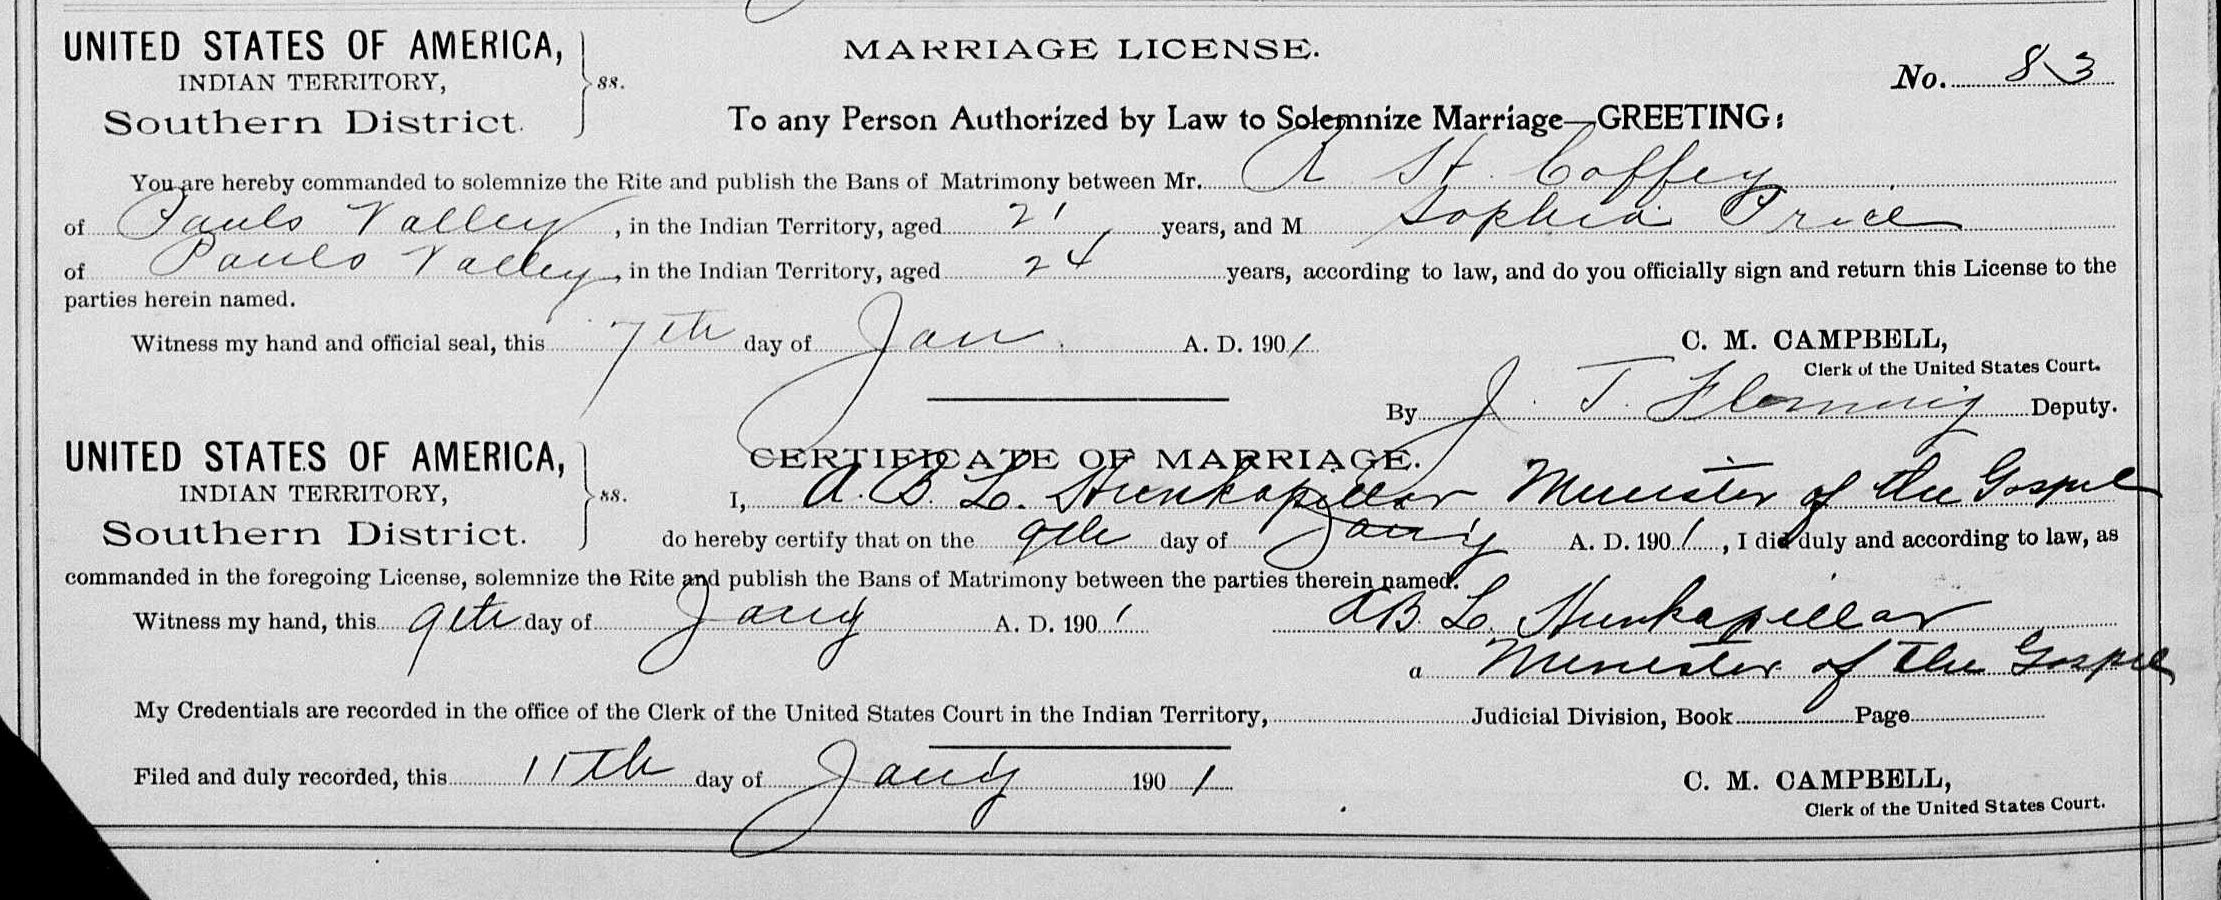 UNITED STATES OF AMERICA,
INDIAN TERRITORY,
Southern District.
ss.
MARRIAGE LICENSE.
No. 83
To any Person Authorized by Law to Solemnize Marriage—GREETING:
You are hereby commanded to solemnize the Rite and publish the Bans of Matrimony between Mr. Coffey
of Pauls Valley, in the Indian Territory, aged 21 years, and M Sophia Price
of Pauls Valley, in the Indian Territory, aged 24 years, according to law, and do you officially sign and return this License to the
parties herein named.
Witness my hand and official seal, this 7th day of Jan. A. D. 1901
C. M. CAMPBELL,
Clerk of the United States Court.
By J. T. Flemming Deputy.
UNITED STATES OF AMERICA,
INDIAN TERRITORY,
Southern District.
ss.
CERTIFICATE OF MARRIAGE.
I, A. B. L. Hunkapillar Minister of the Gospel
do hereby certify that on the 9th day of Jany A. D. 1901, I did duly and according to law, as
commanded in the foregoing License, solemnize the Rite and publish the Bans of Matrimony between the parties therein named.
Witness my hand, this 9th day of Jany A. D. 1901
A B. L. Hunkapillar
a Minister of the Gospel
My Credentials are recorded in the office of the Clerk of the United States Court in the Indian Territory, Judicial Division, Book Page
Filed and duly recorded, this 11th day of Jany 1901
C. M. CAMPBELL,
Clerk of the United States Court.